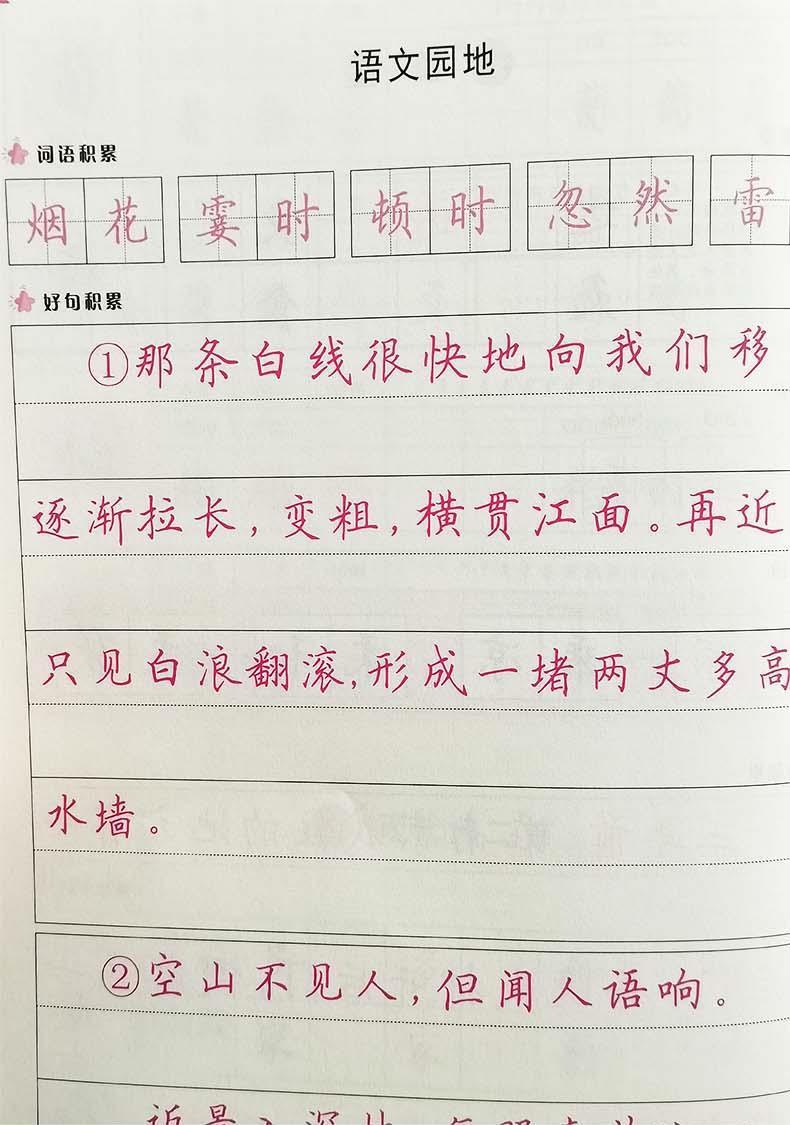 语文园地
词语积累
烟花 霎时 顿时 忽然 雷
好句积累
①那条白线很快地向我们移
逐渐拉长，变粗，横贯江面。再近
只见白浪翻滚，形成一堵两丈多高
水墙。
②空山不见人，但闻人语响。